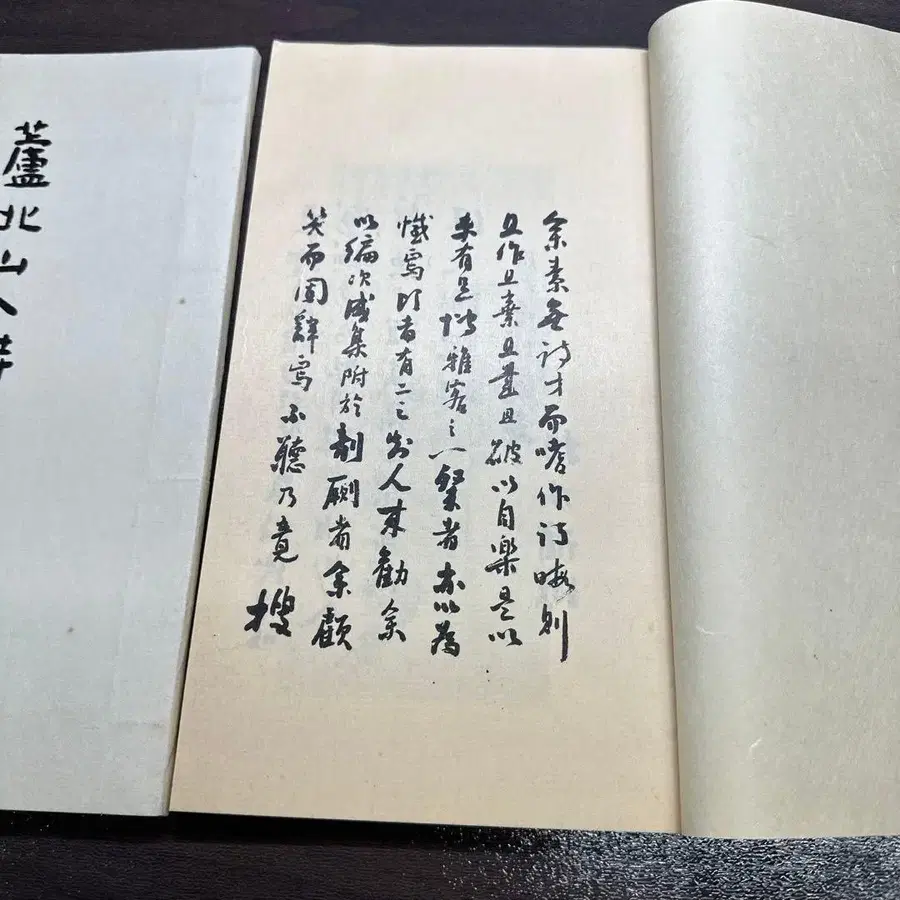 余素無詩才而嗜作詩則
且作且棄且且破以自樂是以
未有足雅客之一粲者亦以為
焉者有二三人來勸余
以編次成集附於剞劂者余顧
笑而固辭焉不聽乃竟搜
蘆北山人詩